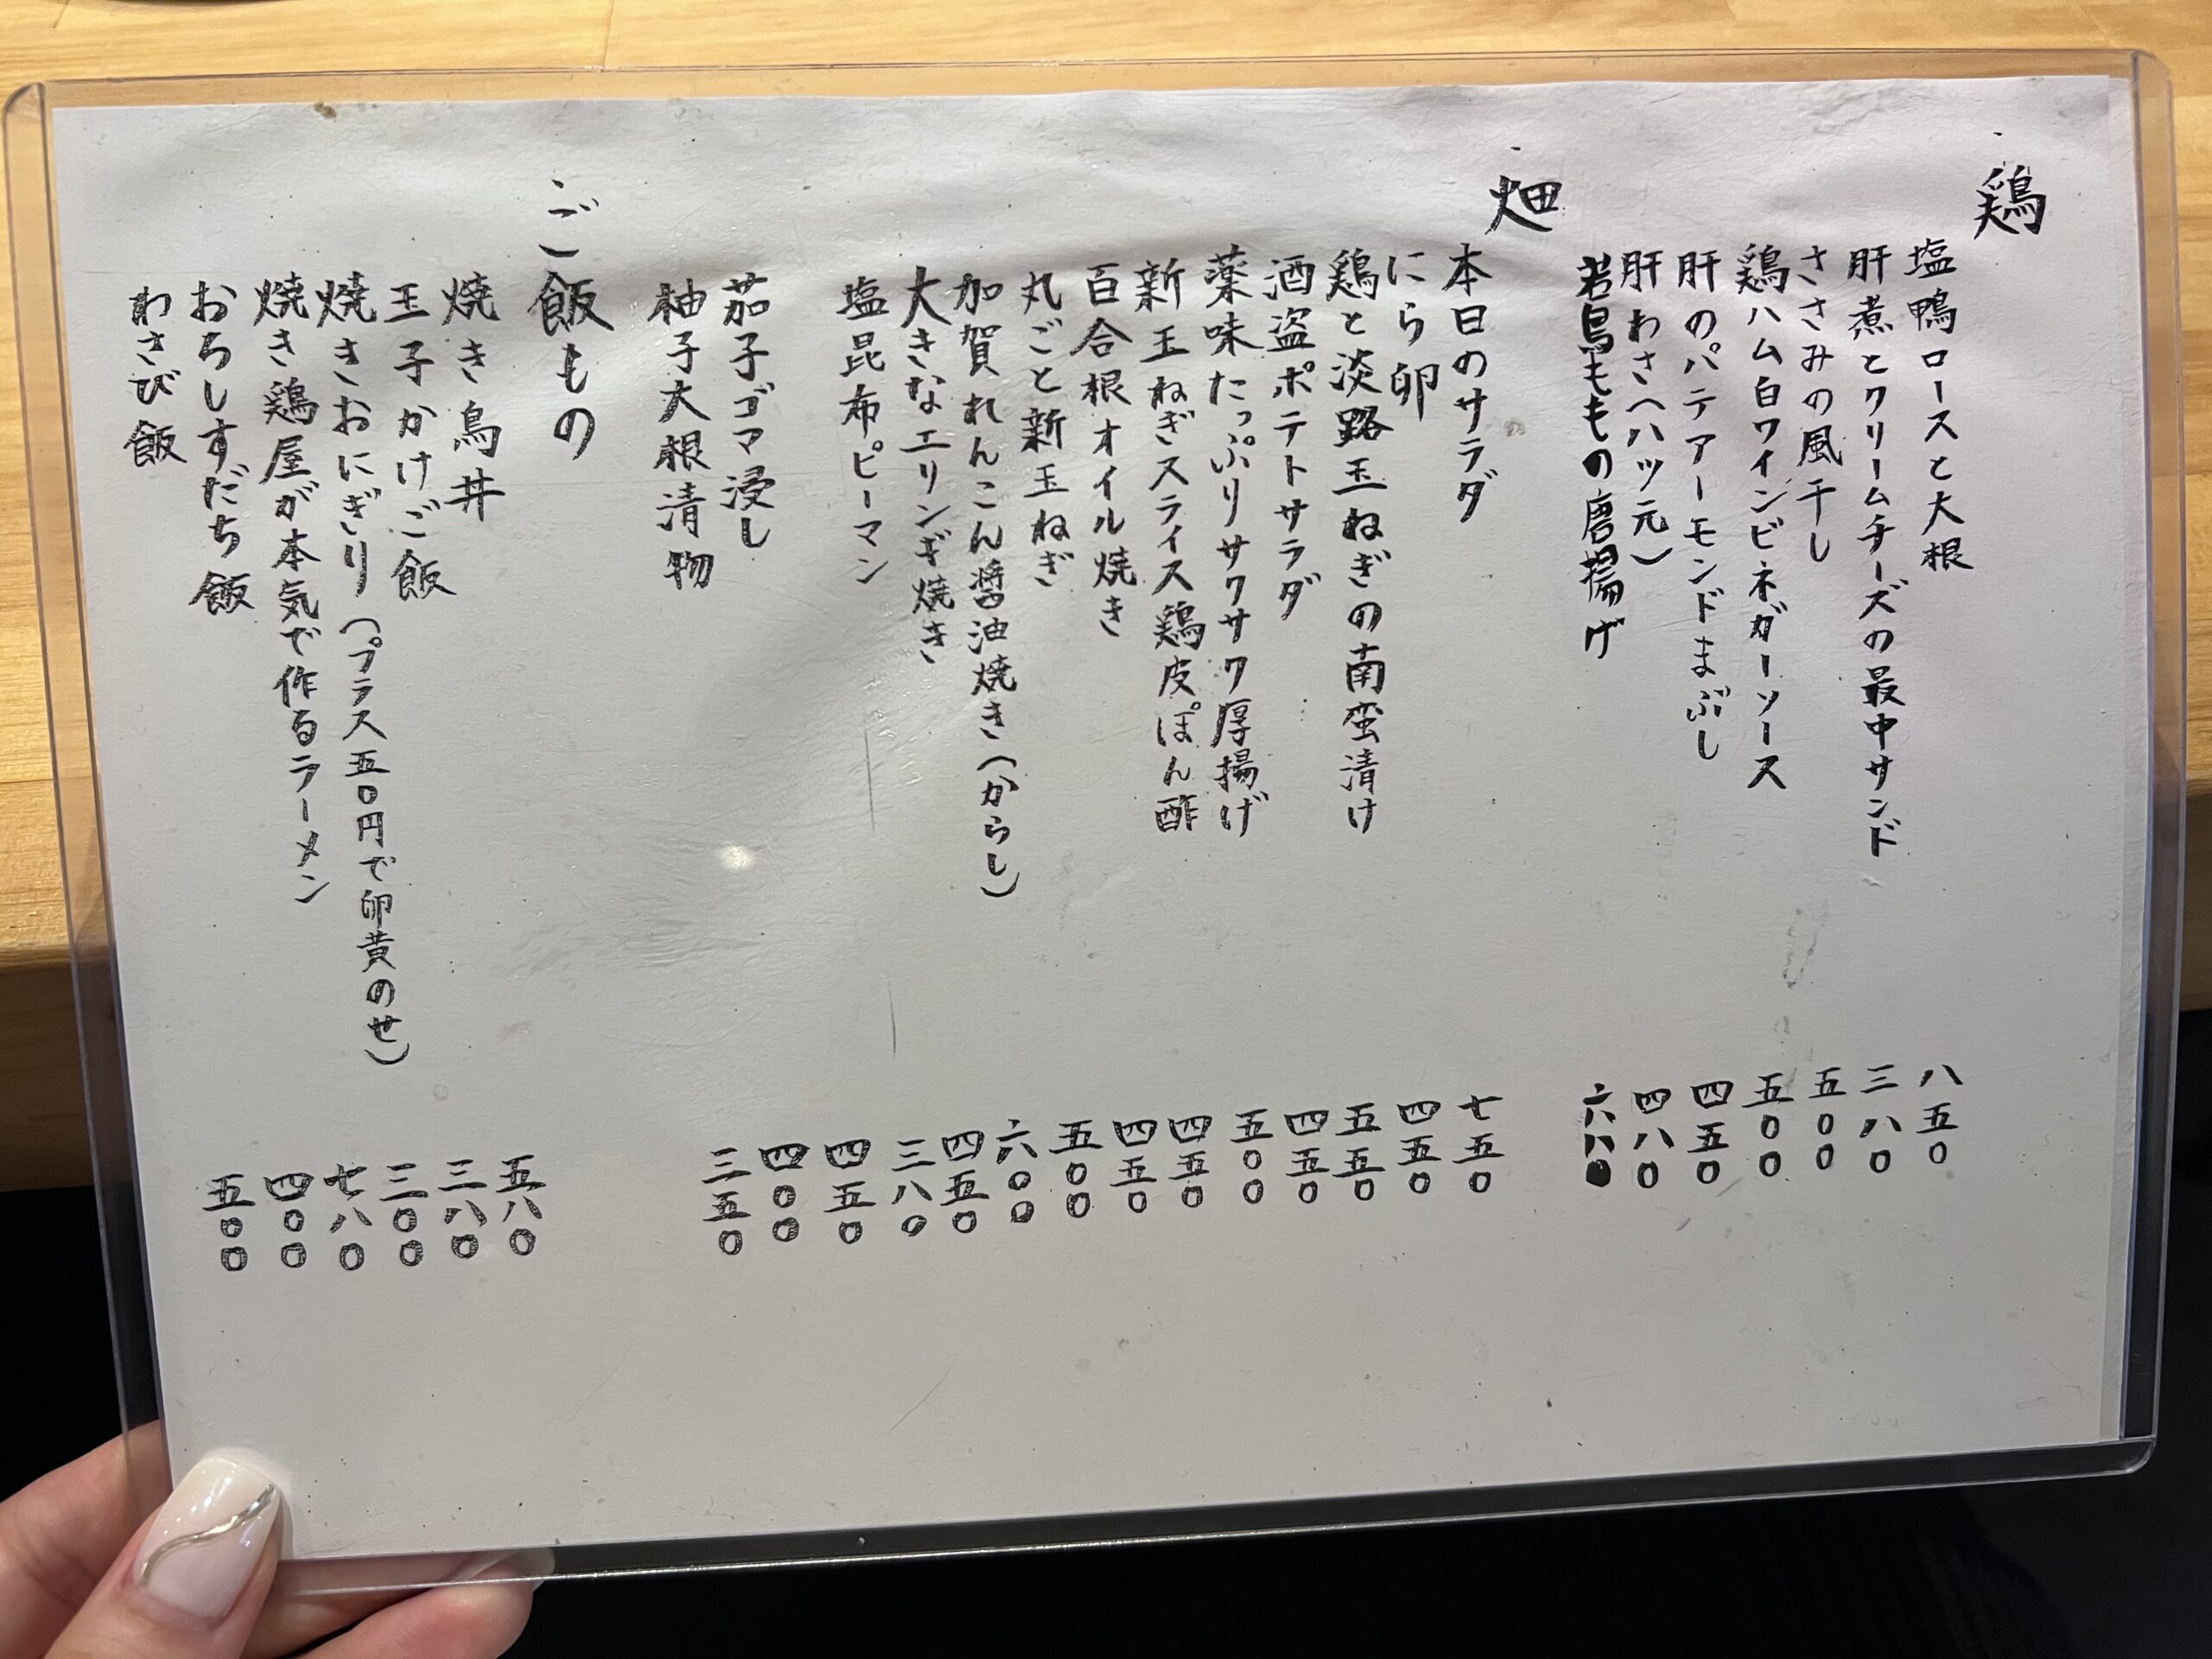 鶏
塩鴨ロースと大根 八五〇
肝煮とクリームチーズの最中サンド 三八〇
ささみの風干し 五〇〇
鶏ハム白ワインビネガーソース 五〇〇
肝のパテアーモンドまぶし 四五〇
肝わさ(ハツ元) 四八〇
若鳥ももの唐揚げ 六八〇
畑
本日のサラダ 七五〇
にら卵 四五〇
鶏と淡路玉ねぎの南蛮清け 五五〇
酒盗ポテトサラダ 四五〇
薬味たっぷりサクサク厚揚げ 五〇〇
新玉ねぎスライス鶏皮ぽん酢 四五〇
百合根オイル焼き 四五〇
丸ごと新玉ねぎ 五〇〇
加賀れんこん醤油焼き(からし) 六〇〇
大きなエリンギ焼き 四五〇
塩昆布ピーマン 三八〇
四五〇
茄子ゴマ浸し 四〇〇
柚子大根清物 三五〇
ご飯もの
焼き鳥丼 五八〇
玉子かけご飯 三八〇
焼きおにぎり(プラス五〇円で卵黄のせ) 三〇〇
焼き鶏屋が本気で作るラーメン 七八〇
おろしすだち飯 四〇〇
わさび飯 五〇〇